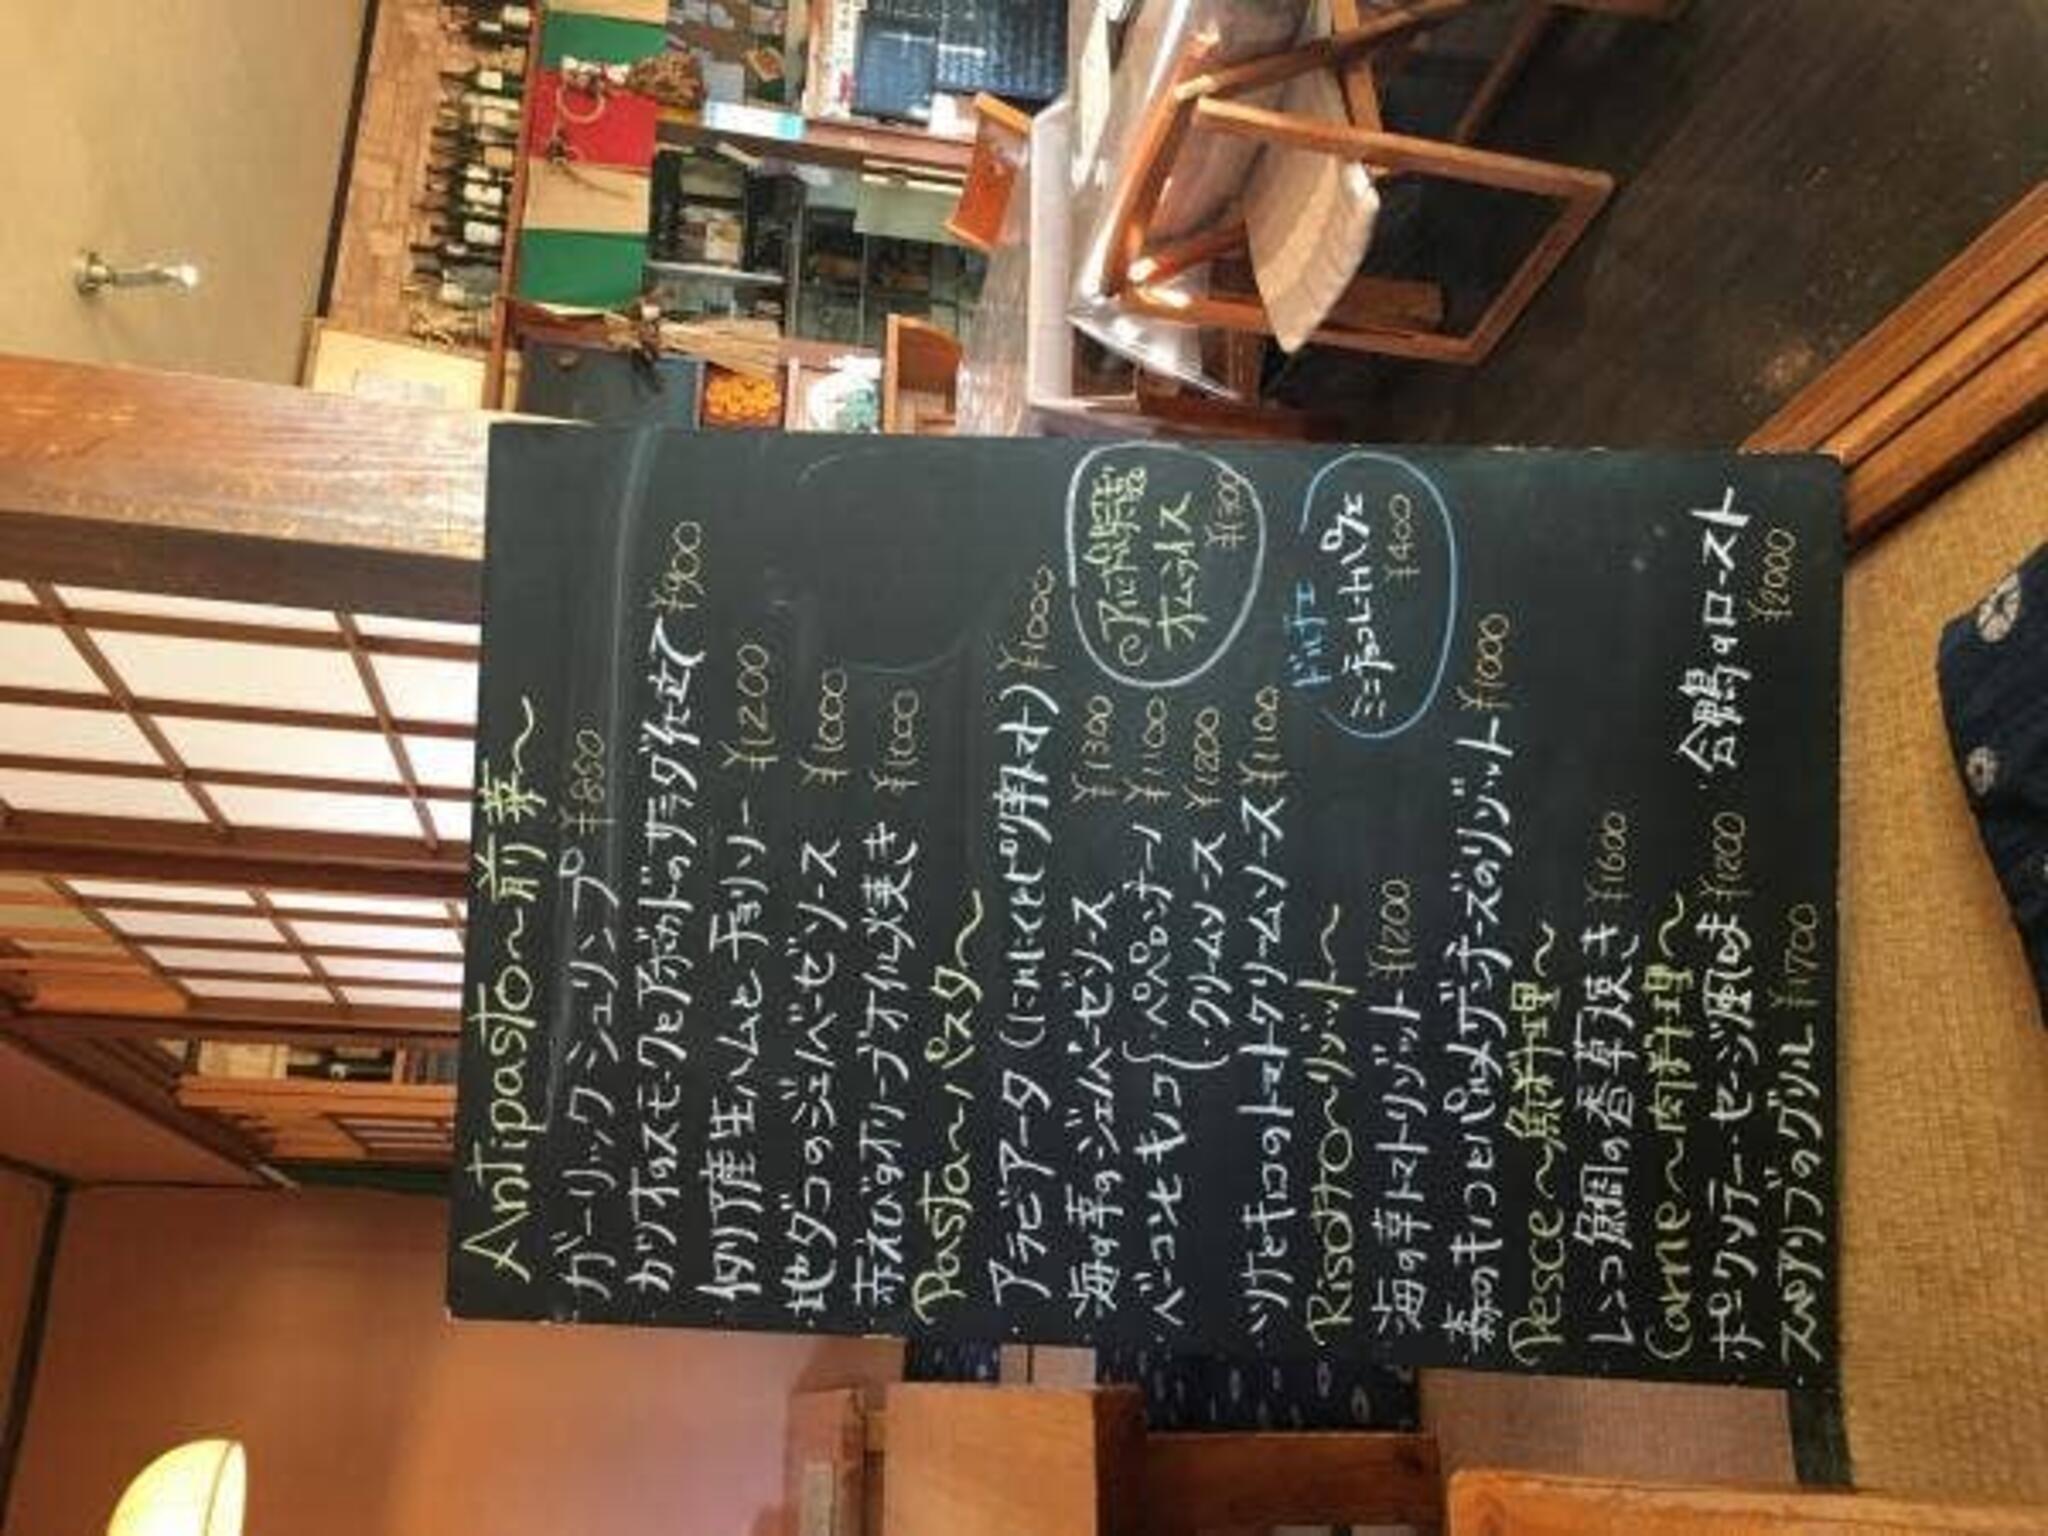 Antipasto～前菜～
ガーリックシュリンプ ¥850
カツオのスモークとアボカドのサラダ仕立て ¥900
何産生ハムとチョリソー ¥1200
地ダコのジェノベーゼソース ¥1000
赤えびのオリーブオイル焼き ¥1000
Pasta～パスタ～
アラビアータ(にんにくとピリ辛トマト) ¥1000
海の幸のジェノベーゼソース ¥1300
ベーコンとキノコ{・ペペロンチーノ ¥1100
・クリームソース ¥1200
ツナとキノコのトマトクリームソース ¥1100
オムライス
¥1300
Risotto～リゾット～
海の幸トマトリゾット ¥1200
森のキノコとパルメザンチーズのリゾット ¥1000
ドルチェ
ミニチョコレートパフェ
¥400
Pesce～魚料理～
レンコ鯛の香草焼き ¥1600
Carne～肉料理～
ポークソテー・セージ風味 ¥1200
スペアリブのグリル ¥1700
・合鴨のロースト
¥2000